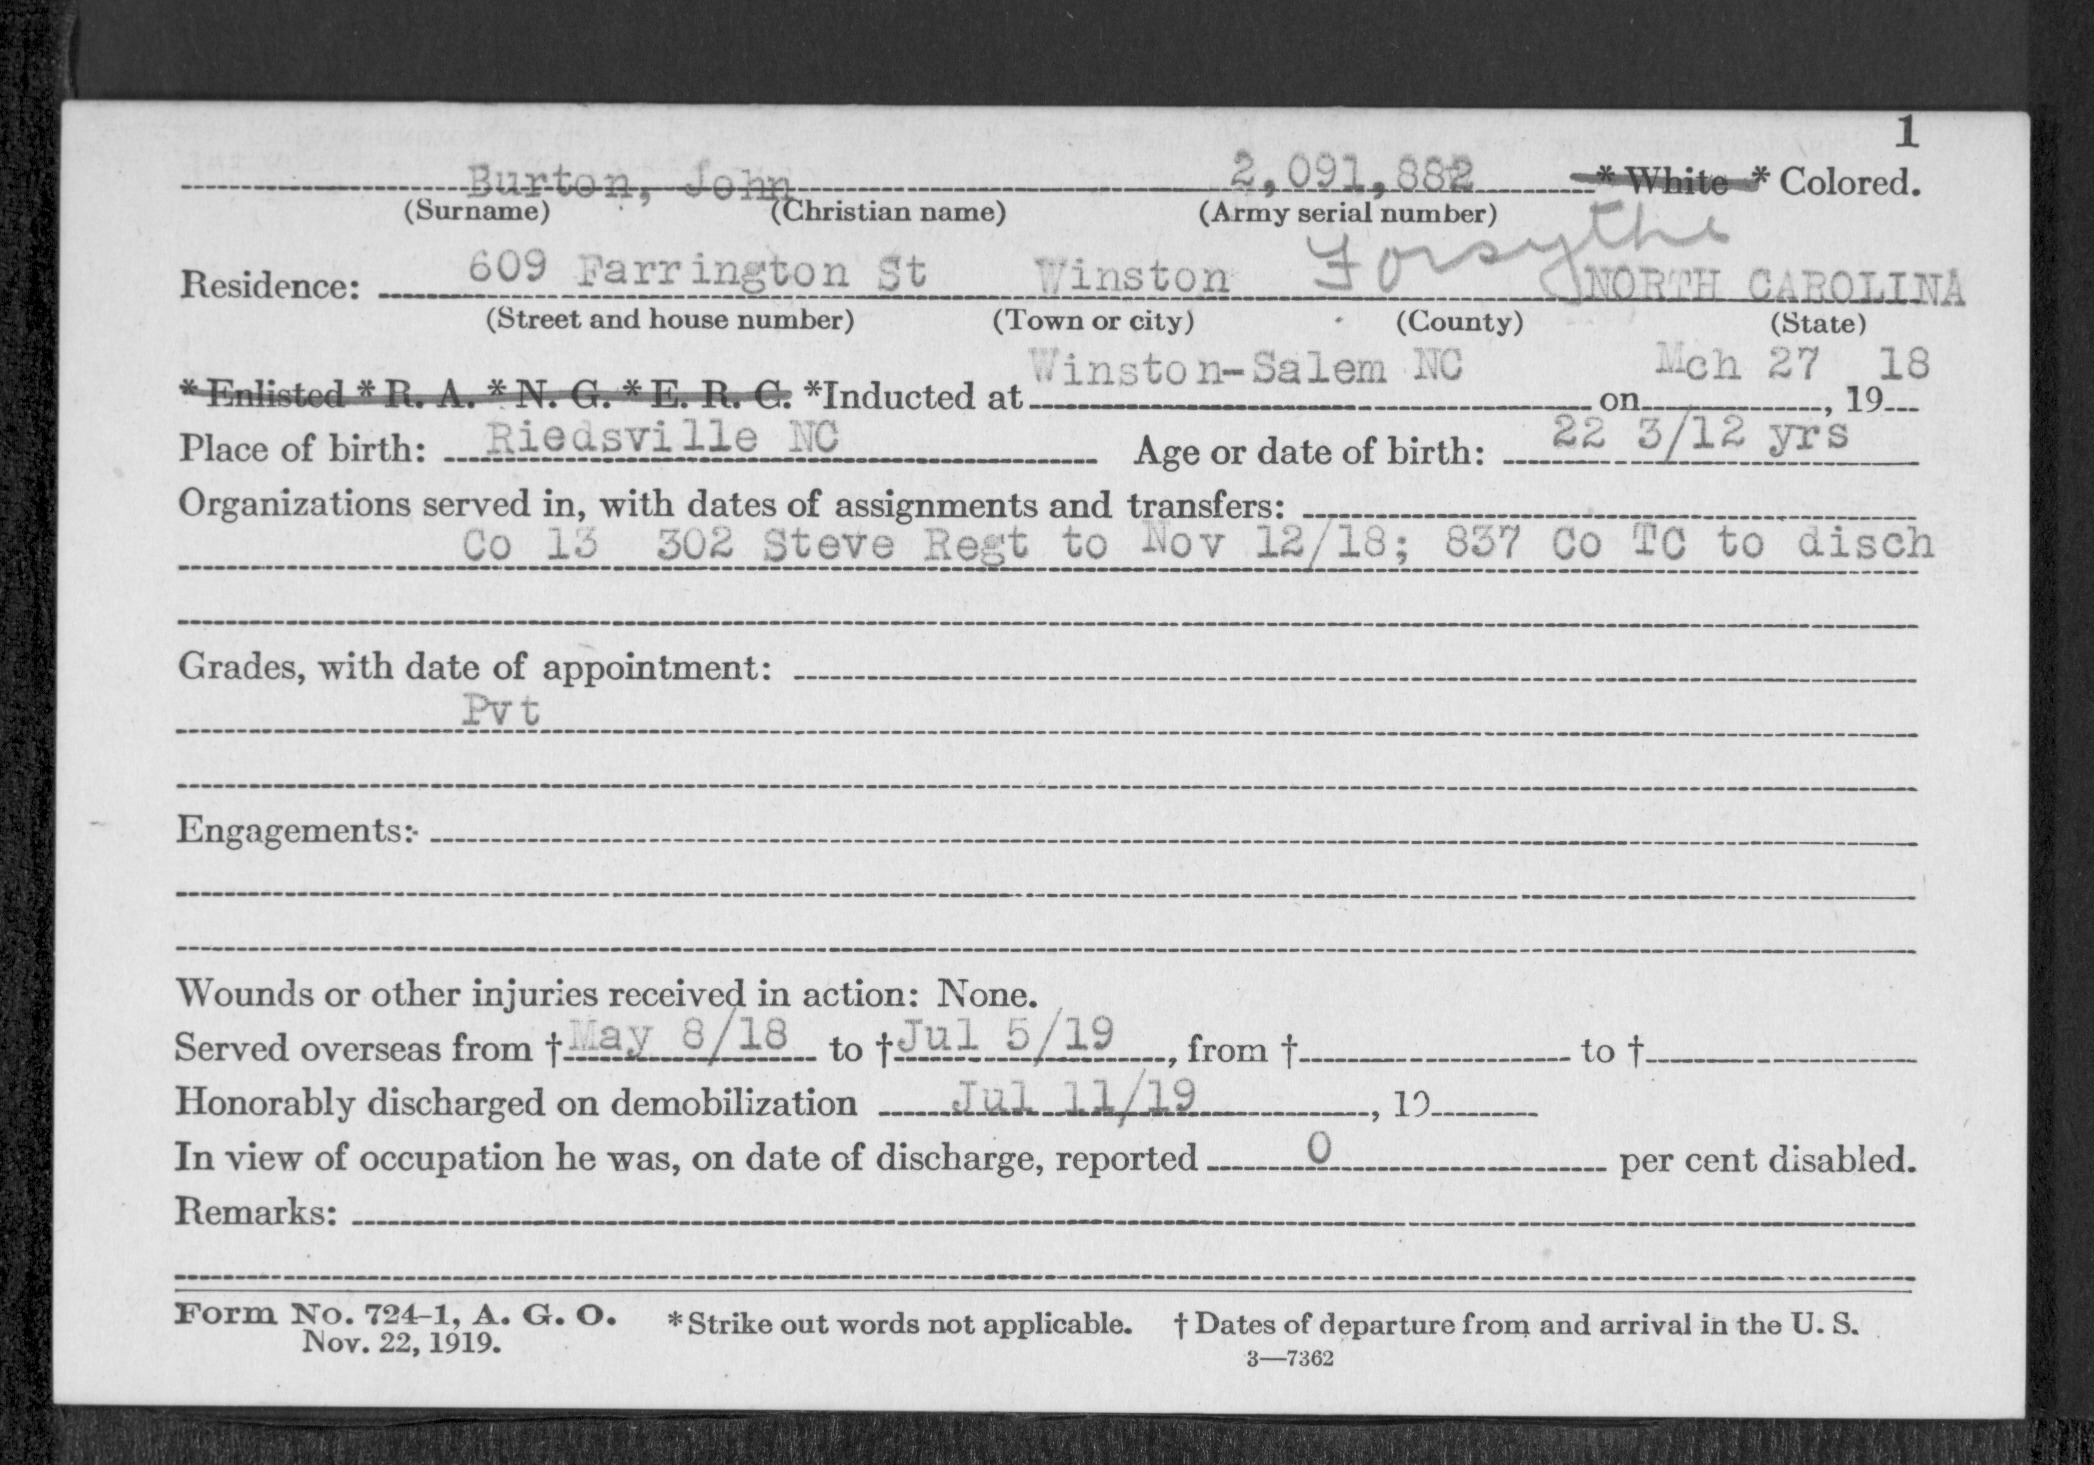 1
Burton, John 2,091,882 * White * Colored.
(Surname) (Christian name) (Army serial number)
Residence: 609 Farrington St Winston Forsythe NORTH CAROLINA
(Street and house number) (Town or city) (County) (State)
* Enlisted * R. A. * N. G. * E. R. C. *Inducted at Winston-Salem NC on Mch 27, 1918
Place of birth: Riedsville NC Age or date of birth: 22 3/12 yrs
Organizations served in, with dates of assignments and transfers:
Co 13 302 Steve Regt to Nov 12/18; 837 Co TC to disch
Grades, with date of appointment:
Pvt
Engagements:
Wounds or other injuries received in action: None.
Served overseas from † May 8/18 to † Jul 5/19, from † to †
Honorably discharged on demobilization Jul 11/19, 19
In view of occupation he was, on date of discharge, reported 0 per cent disabled.
Remarks:
Form No. 724-1, A. G. O. * Strike out words not applicable. † Dates of departure from and arrival in the U. S.
Nov. 22, 1919. 3—7362